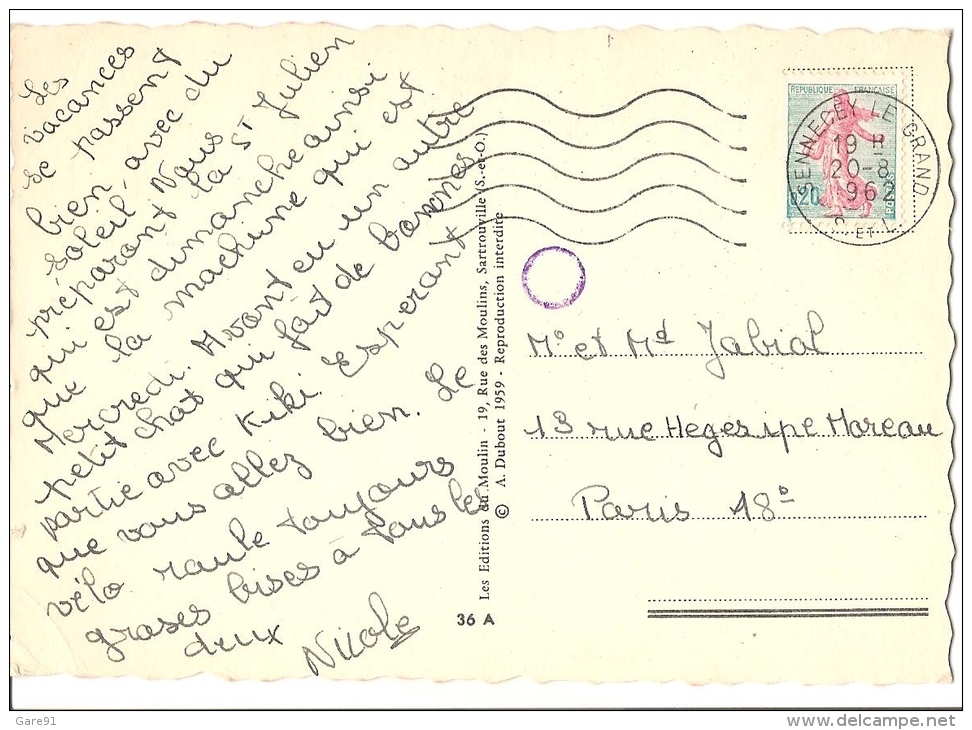 Les
vacances
se passent
bien, avec du
soleil. Nous
préparont la St Julien
qui est dimanche ainsi
que la machine qui est
Mercredi. Avont eu un autre
petit chat qui fait de bonnes
partie avec Kiki. Esperant
que vous allez bien. Le
vélo roule toujours
groses bises à tous les
deux
Nicole
36 A
Les Editions du Moulin - 19, Rue des Moulins, Sartrouville (S.-et-O.)
© A. Dubout 1959 - Reproduction interdite
REPUBLIQUE FRANÇAISE
0,20
SENNECEY LE GRAND
19 H
20-8
1962
Mr et Md Jabial
13 rue Hégésipe Moreau
Paris 18e
Gare91
delcampe.net